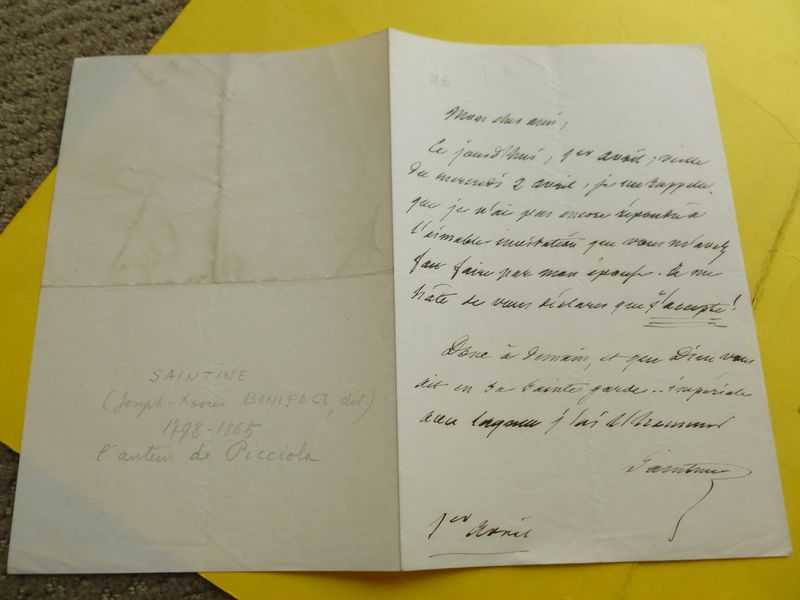 SAINTINE
(Joseph-Xavier BONIFACE, dit)
1798-1865
l'auteur de Picciola
Mon cher ami,
Ce jourd'hui, 1er avril, veille
du mercredi 2 avril, je me rappelle
que je n'ai pas encore répondu à
l'aimable invitation que vous m'avez
fait faire par mon épouse. Je me
hâte de vous déclarer que j'accepte!
Donc à demain, et que Dieu vous
ait en sa sainte garde.. impériale
avec laquelle j'ai l'honneur
Saintine
1er avril